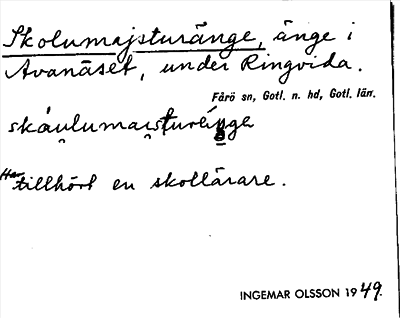 Skolumajsturänge, änge i
Avanäset, under Ringvida.
Fårö sn, Gotl. n. hd, Gotl. län.
skáulumaisturéŋgä
Har tillhört en skollärare.
INGEMAR OLSSON 1949.